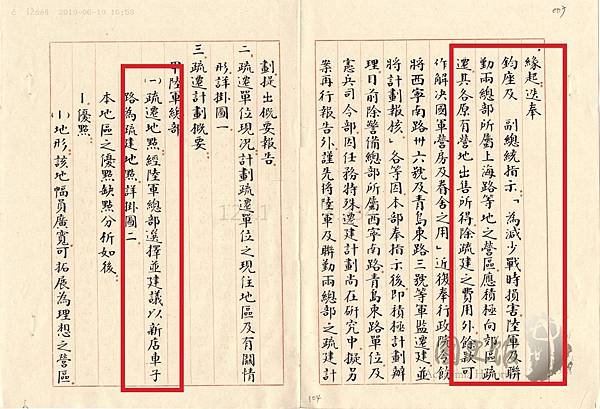 緣起迭奉
鈞座及 副總統指示「為減少戰時損害陸軍及聯
勤兩總部所屬上海路等地之營區應積極向郊區疏
遷其各原有營地出售所得除疏建之費用外餘款可
作解決國軍營房及眷舍之用」近復奉行政院令飭
將西寧南路卅六號及青島東路三號等軍監遷建並
將計劃報核」各等因本部奉指示後即積極計劃辦
理目前除警備總部所屬西寧南路青島東路單位及
憲兵司令部因任務特殊遷建計劃尚在研究中擬另
案再行報告外謹先將陸軍及聯勤兩總部之疏建計
劃提出概要報告
二、疏遷單位現況計劃疏遷單位之現住地區及有關情
形詳掛圖一
三、疏遷計劃概要
甲、陸軍總部
㈠疏遷地點經陸軍總部選擇並建議以新店車子
路為疏建地點詳掛圖二
本地區之優點缺點分析如後：
1.優點：
⑴地形：該地幅員廣寬可拓展為理想之營區
104
2019-06-19 10:58